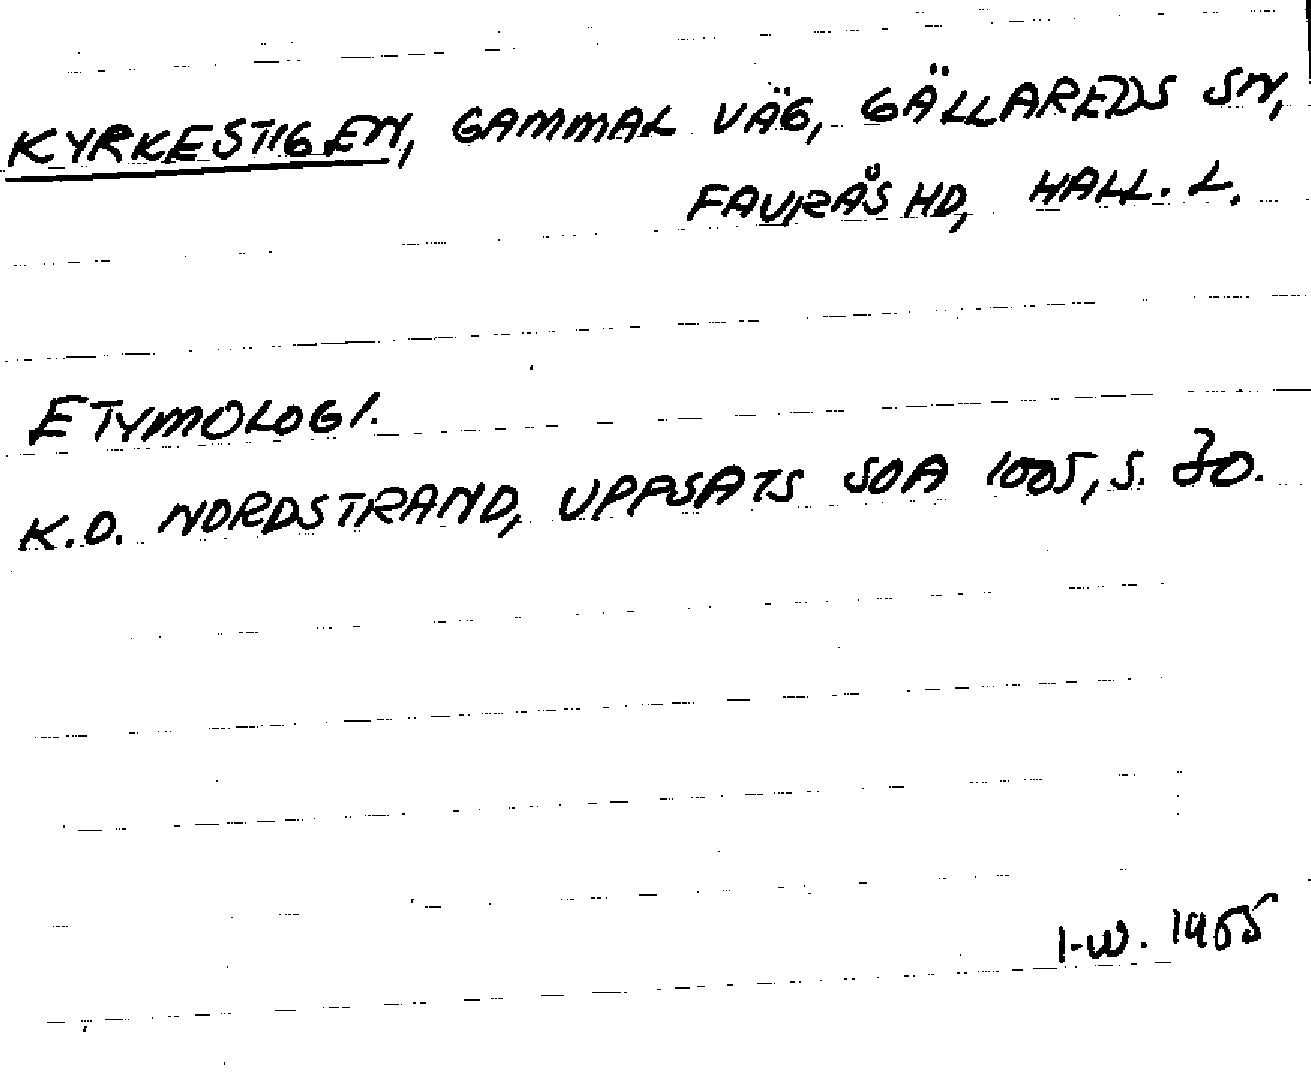 KYRKESTIGEN, GAMMAL VÄG, GÄLLAREDS SN,
FAURÅS HD, HALL. L.
ETYMOLOGI.
K.O. NORDSTRAND, UPPSATS SOA 1005, S. 20.
I-W. 1965